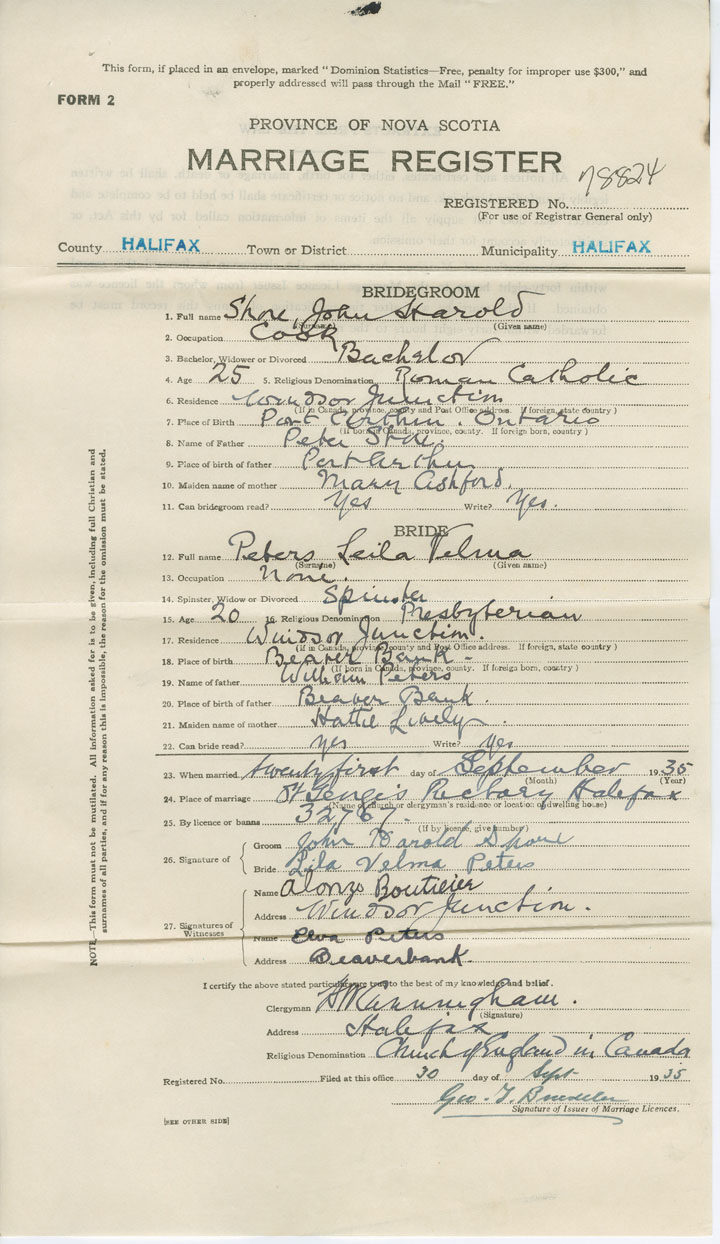 This form, if placed in an envelope, marked "Dominion Statistics—Free, penalty for improper use $300," and
properly addressed will pass through the Mail "FREE."
FORM 2
PROVINCE OF NOVA SCOTIA
MARRIAGE REGISTER
78824
REGISTERED No.
(For use of Registrar General only)
County HALIFAX Town or District Municipality HALIFAX
BRIDEGROOM
1. Full name Shore, John Harold
(Surname) (Given name)
2. Occupation Cook
3. Bachelor, Widower or Divorced Bachelor
4. Age 25 5. Religious Denomination Roman Catholic
6. Residence Windsor Junction
(If in Canada, province, county and Post Office address. If foreign, state country)
7. Place of Birth Port Arthur. Ontario
(If born in Canada, province, county. If foreign born, country)
8. Name of Father Peter Shore.
9. Place of birth of father Port Arthur
10. Maiden name of mother Mary Ashford.
11. Can bridegroom read? Yes Write? Yes.
BRIDE
12. Full name Peters Leila Velma
(Surname) (Given name)
13. Occupation None.
14. Spinster, Widow or Divorced Spinster
15. Age 20 16. Religious Denomination Presbyterian
17. Residence Windsor Junction.
(If in Canada, province, county and Post Office address. If foreign, state country)
18. Place of birth Beaver Bank -
(If born in Canada, province, county. If foreign born, country)
19. Name of father William Peters
20. Place of birth of father Beaver Bank.
21. Maiden name of mother Hattie Lively.
22. Can bride read? Yes Write? Yes
23. When married twenty first day of September 1935
(Month) (Year)
24. Place of marriage St George's Rectory Halifax
(Name of church or clergyman's residence or location of dwelling house)
25. By licence or banns 32767.
(If by license, give number)
26. Signature of
Groom John Harold Shore
Bride Lila Velma Peters
27. Signatures of Witnesses
Name Alonzo Boutilier
Address Windsor Junction.
Name Elva Peters
Address Beaverbank.
I certify the above stated particulars are true to the best of my knowledge and belief.
Clergyman Cunningham.
(Signature)
Address Halifax
Religious Denomination Church of England in Canada
Registered No. Filed at this office 30 day of Sept 1935
Geo. T.
Signature of Issuer of Marriage Licences.
[SEE OTHER SIDE]
NOTE—This form must not be mutilated. All information asked for is to be given, including full Christian and
surnames of all parties, and if for any reason this is impossible, the reason for the omission must be stated.